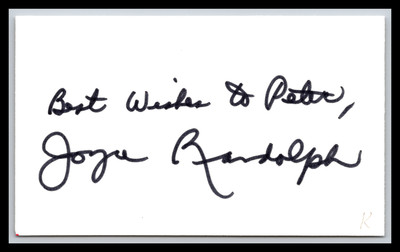 Best Wishes to Peter,
Joyce Randolph
K